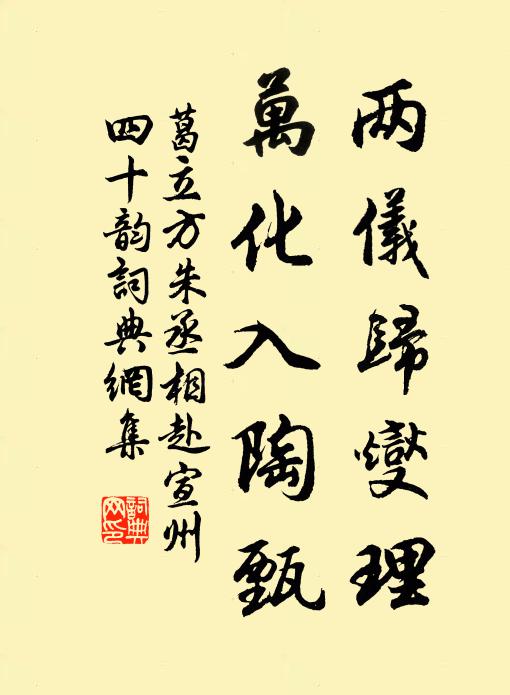 两儀歸燮理
萬化入陶甄
葛立方朱丞相赴宣州
四十韵詞典網集
詞典網印